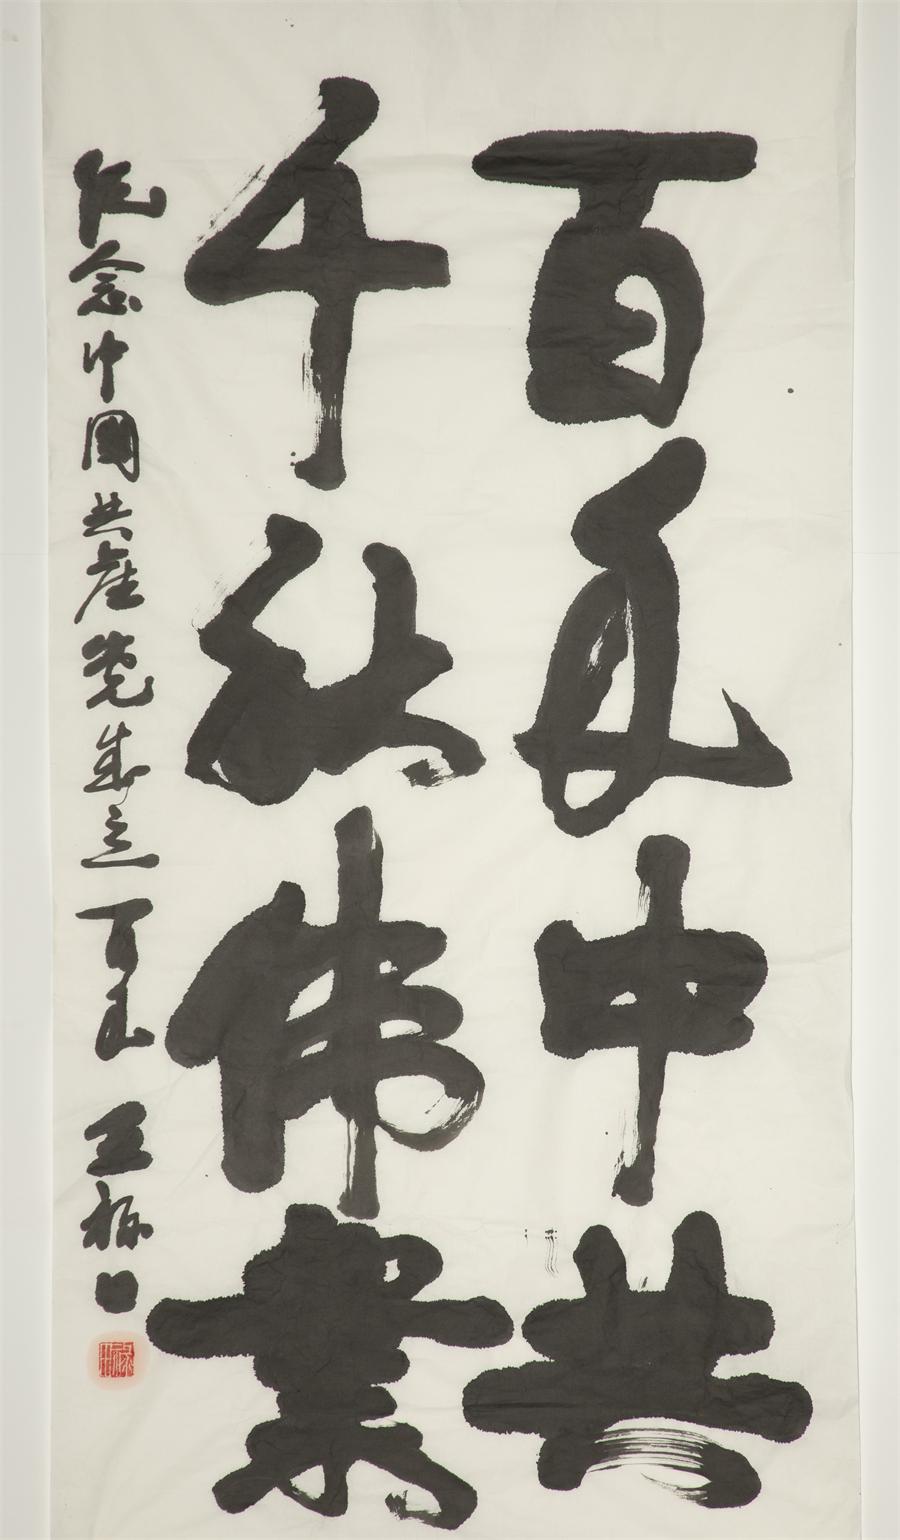 百年中共
千秋伟業
纪念中國共產党成立百年 王